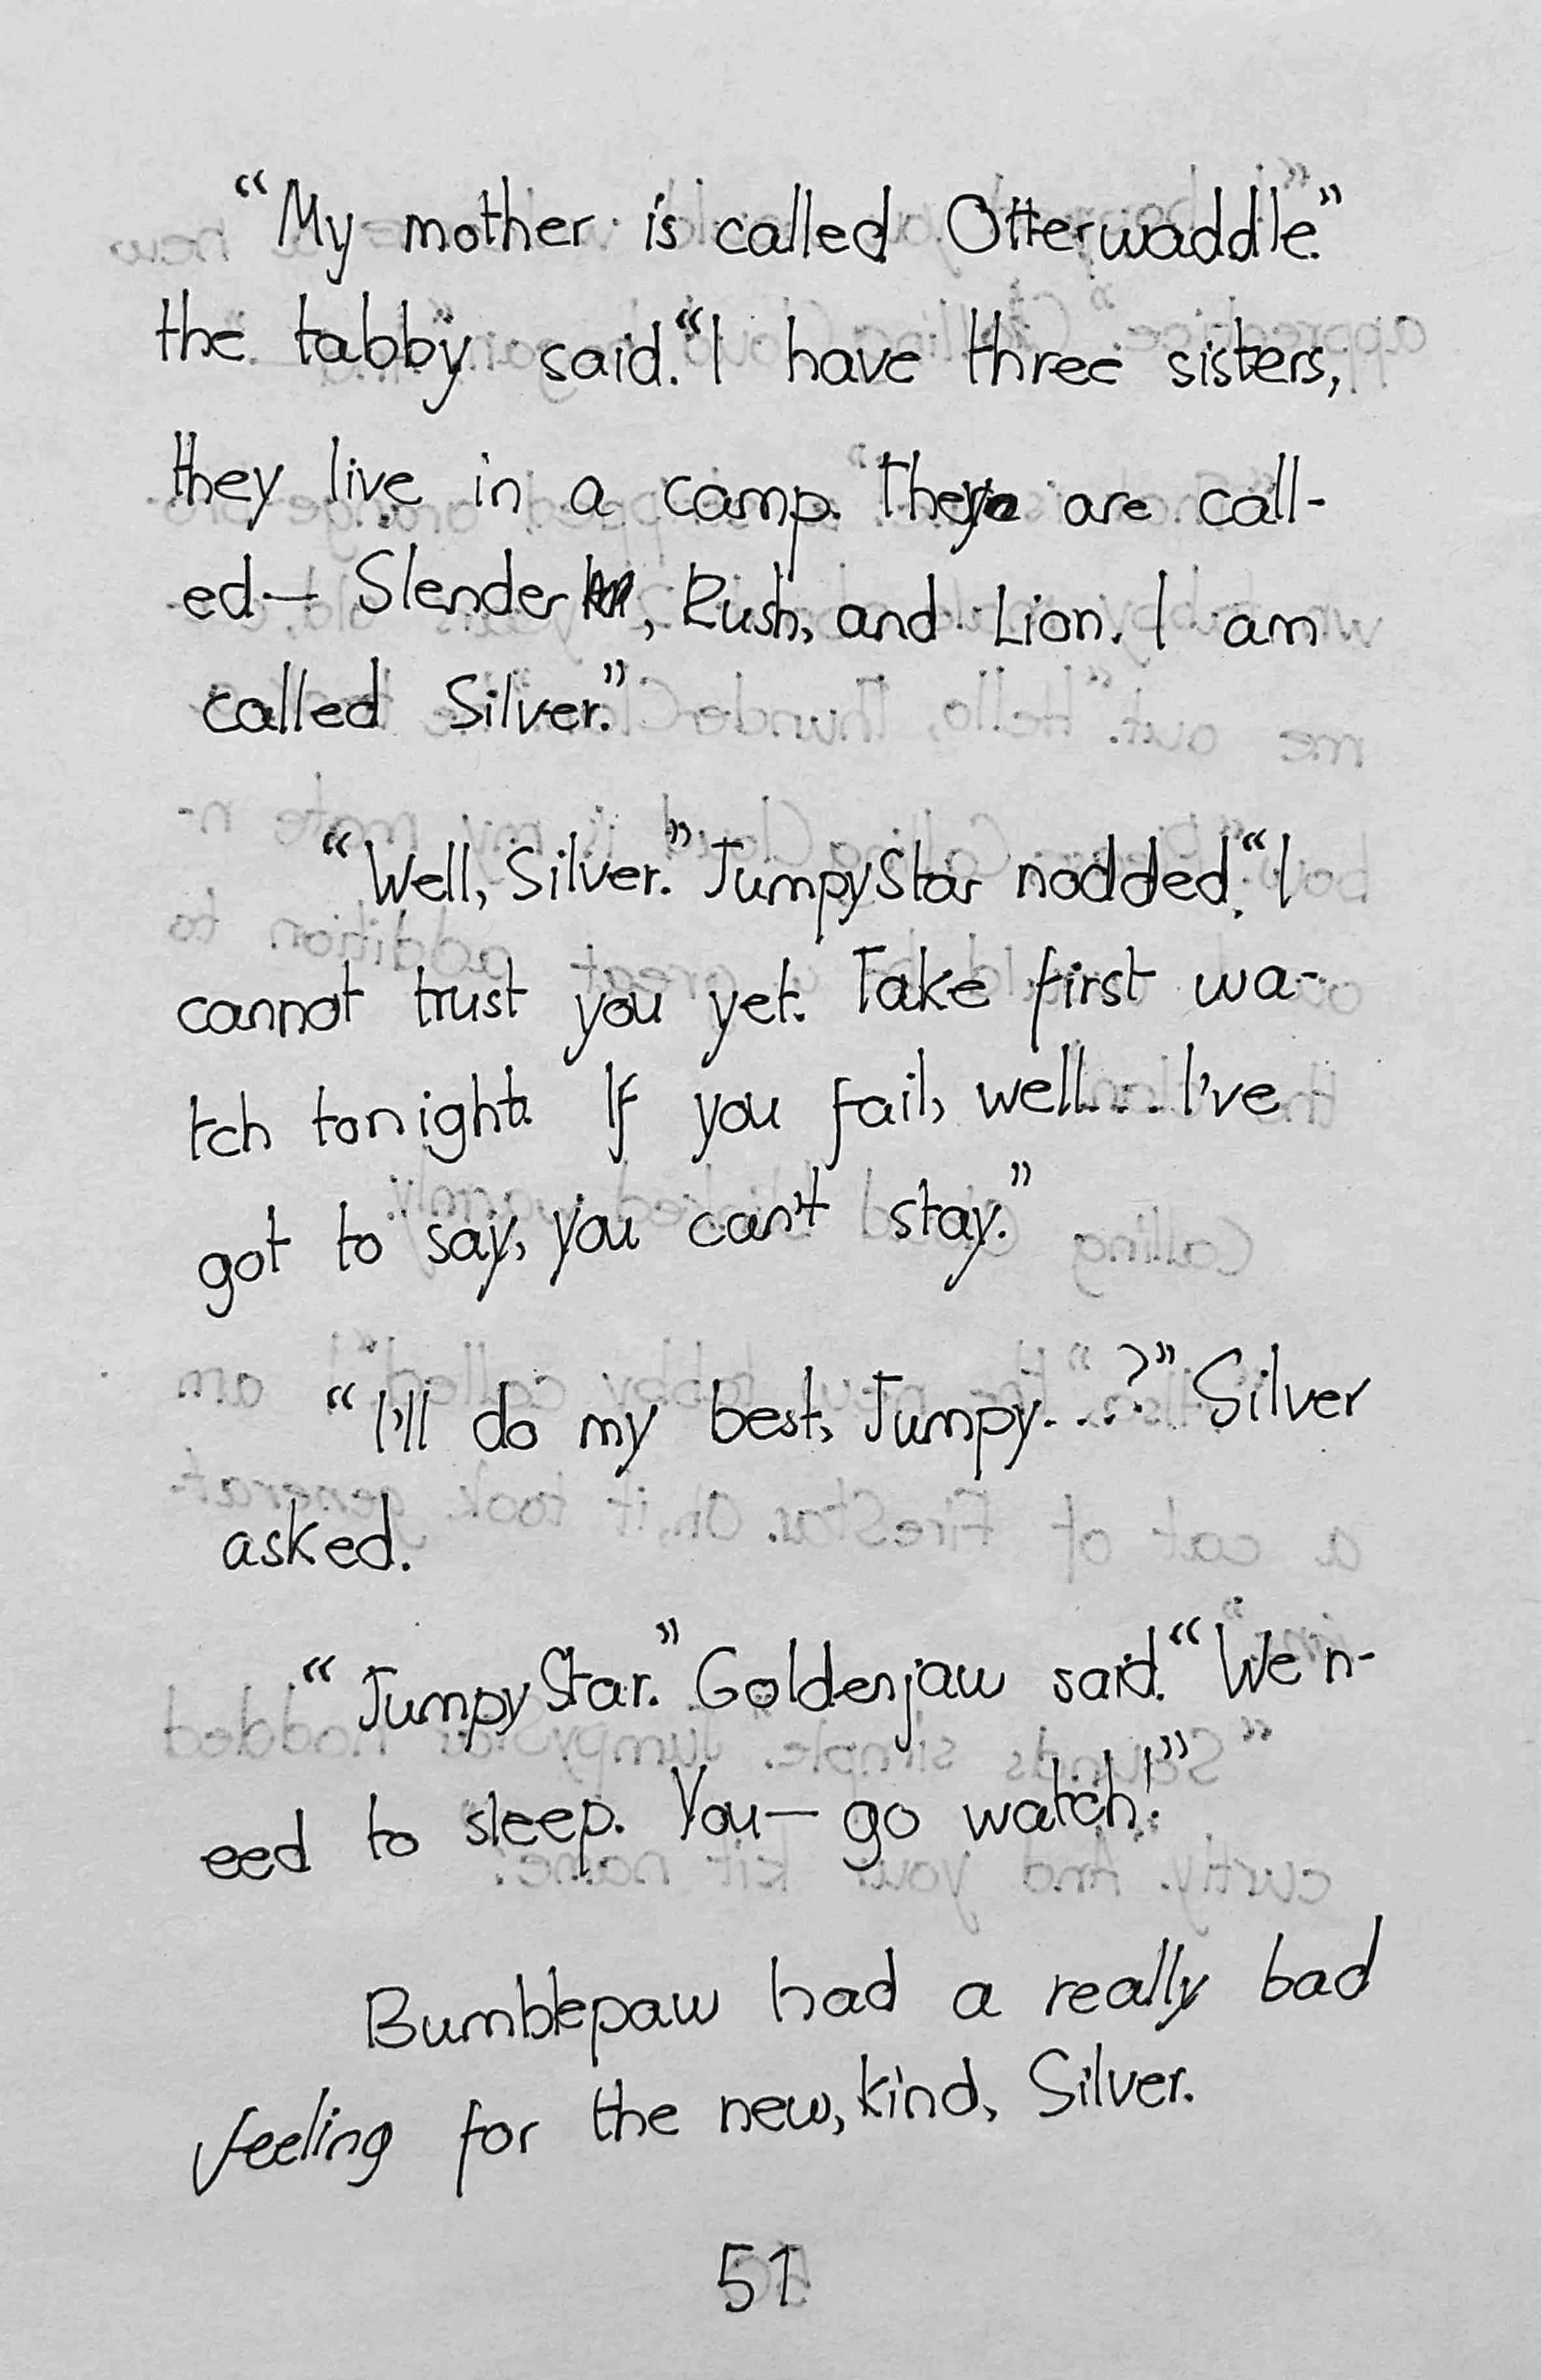 “My mother is called Otterwaddle.”
the tabby said. “I have three sisters,
they live in a camp. They are call-
ed— Slender, Rush, and Lion. I am
called Silver.”
“Well, Silver.” JumpyStar nodded. “I
cannot trust you yet. Take first wa-
tch tonight. If you fail, well... I've
got to say, you can't stay.”
“I'll do my best, Jumpy...?” Silver
asked.
“JumpyStar.” Goldenjaw said. “We n-
eed to sleep. You— go watch!”
Bumblepaw had a really bad
feeling for the new, kind, Silver.
51